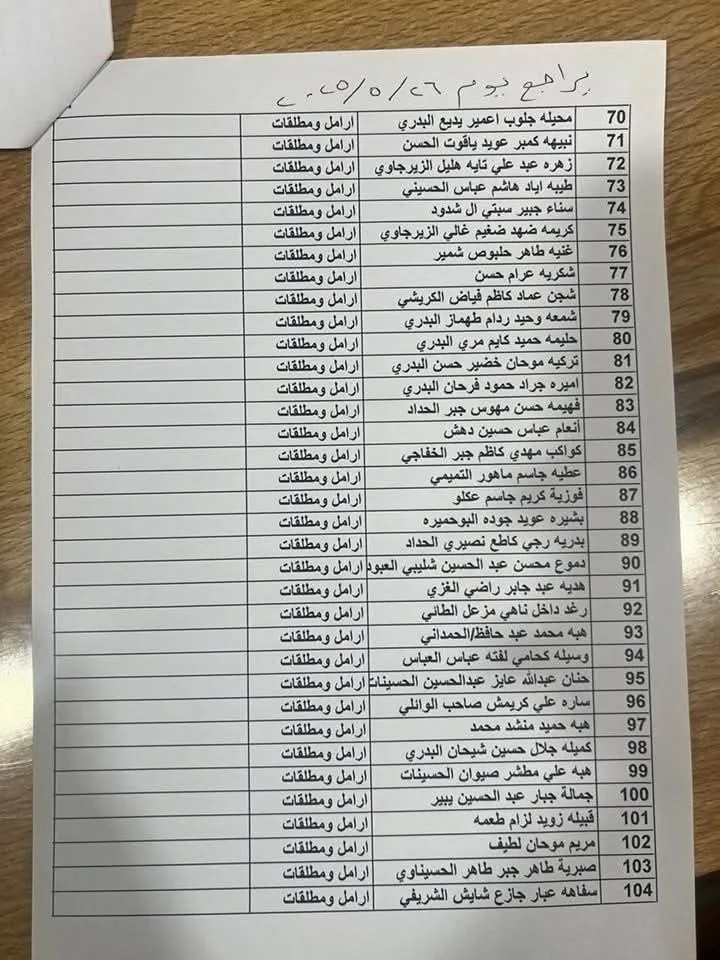 يراجع يوم ٢٠٢٥/٥/٢٦
70 محيله جلوب اعمير يديع البدري ارامل ومطلقات
71 نبيهه كمبر عويد ياقوت الحسن ارامل ومطلقات
72 زهره عبد علي تايه هليل الزيرجاوي ارامل ومطلقات
73 طيبه اياد هاشم عباس الحسيني ارامل ومطلقات
74 سناء جبير سبتي ال شدود ارامل ومطلقات
75 كريمه ضهد ضغيم غالي الزيرجاوي ارامل ومطلقات
76 غنيه طاهر حلبوص شمير ارامل ومطلقات
77 شكريه عرام حسن ارامل ومطلقات
78 شجن عماد كاظم فياض الكريشي ارامل ومطلقات
79 شمعه وحيد ردام طهماز البدري ارامل ومطلقات
80 حليمه حميد كايم مري البدري ارامل ومطلقات
81 تركيه موحان خضير حسن البدري ارامل ومطلقات
82 اميره جراد حمود فرحان البدري ارامل ومطلقات
83 فهيمه حسن مهوس جبر الحداد ارامل ومطلقات
84 أنعام عباس حسين دهش ارامل ومطلقات
85 كواكب مهدي كاظم جبر الخفاجي ارامل ومطلقات
86 عطيه جاسم ماهور التميمي ارامل ومطلقات
87 فوزية كريم جاسم عكلو ارامل ومطلقات
88 بشيره عويد جوده البوحميره ارامل ومطلقات
89 بدريه رجي كاطع نصيري الحداد ارامل ومطلقات
90 دموع محسن عبد الحسين شليبي العبود ارامل ومطلقات
91 هديه عبد جابر راضي الغزي ارامل ومطلقات
92 رغد داخل ناهي مزعل الطائي ارامل ومطلقات
93 هبه محمد عبد حافظ/الحمداني ارامل ومطلقات
94 وسيله كحامي لفته عباس العباس ارامل ومطلقات
95 حنان عبدالله عايز عبدالحسين الحسينات ارامل ومطلقات
96 ساره علي كريمش صاحب الوائلي ارامل ومطلقات
97 هبه حميد منشد محمد ارامل ومطلقات
98 كميله جلال حسين شيحان البدري ارامل ومطلقات
99 هبه علي مطشر صيوان الحسينات ارامل ومطلقات
100 جمالة جبار عبد الحسين يبير ارامل ومطلقات
101 قبيله زويد لزام طعمه ارامل ومطلقات
102 مريم موحان لطيف ارامل ومطلقات
103 صبرية طاهر جبر طاهر الحسيناوي ارامل ومطلقات
104 سفاهه عبار جازع شايش الشريفي ارامل ومطلقات